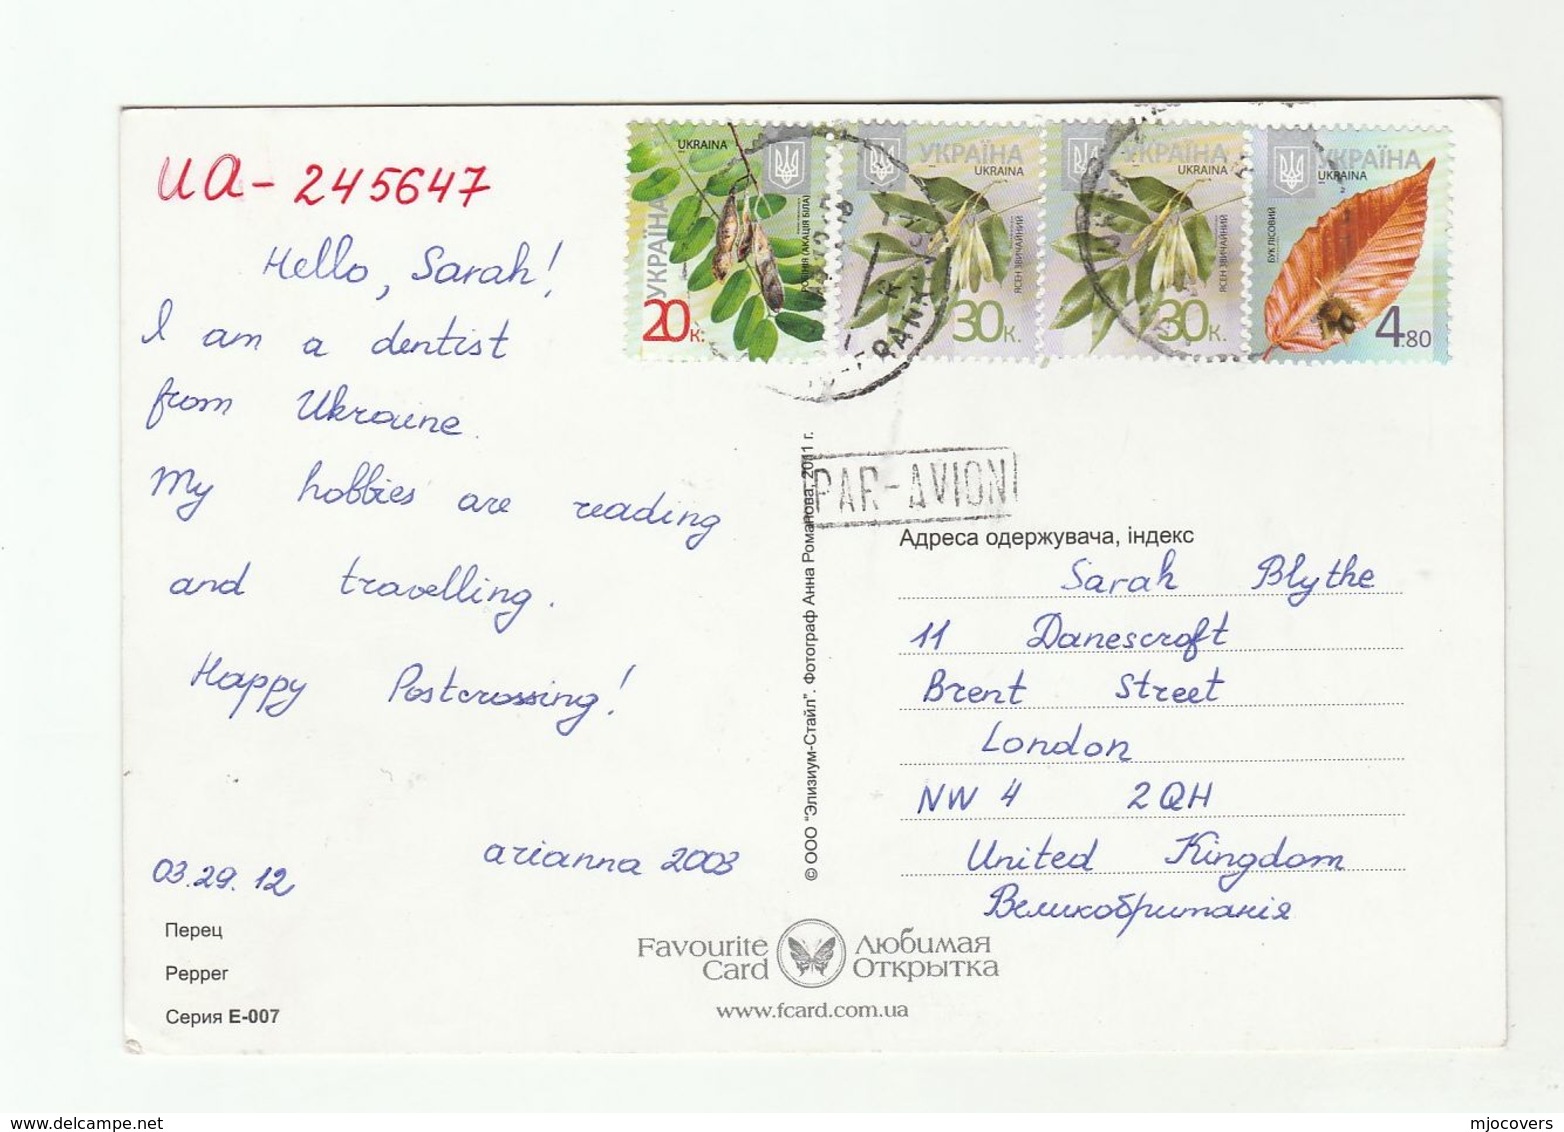 UA-245647
Hello, Sarah!
I am a dentist
from Ukraine.
My hobbies are reading
and travelling.
Happy Postcrossing!
arianna 2003
03.29.12
Перец
Pepper
Серия Е-007
UKRAINA
УКРАЇНА
РОБІНІЯ (АКАЦІЯ БІЛА)
20к.
УКРАЇНА
UKRAINA
ЯСЕН ЗВИЧАЙНИЙ
30к.
УКРАЇНА
UKRAINA
ЯСЕН ЗВИЧАЙНИЙ
30к.
УКРАЇНА
UKRAINA
БУК ЛІСОВИЙ
4.80
PAR-AVION
© ООО "Элизиум-Стайл". Фотограф Анна Романова, 2011 г.
Адреса одержувача, індекс
Sarah Blythe
11 Danescroft
Brent Street
London
NW 4 2QH
United Kingdom
Великобританія
Favourite Card
Любимая Открытка
www.fcard.com.ua
www.delcampe.net
mjocovers